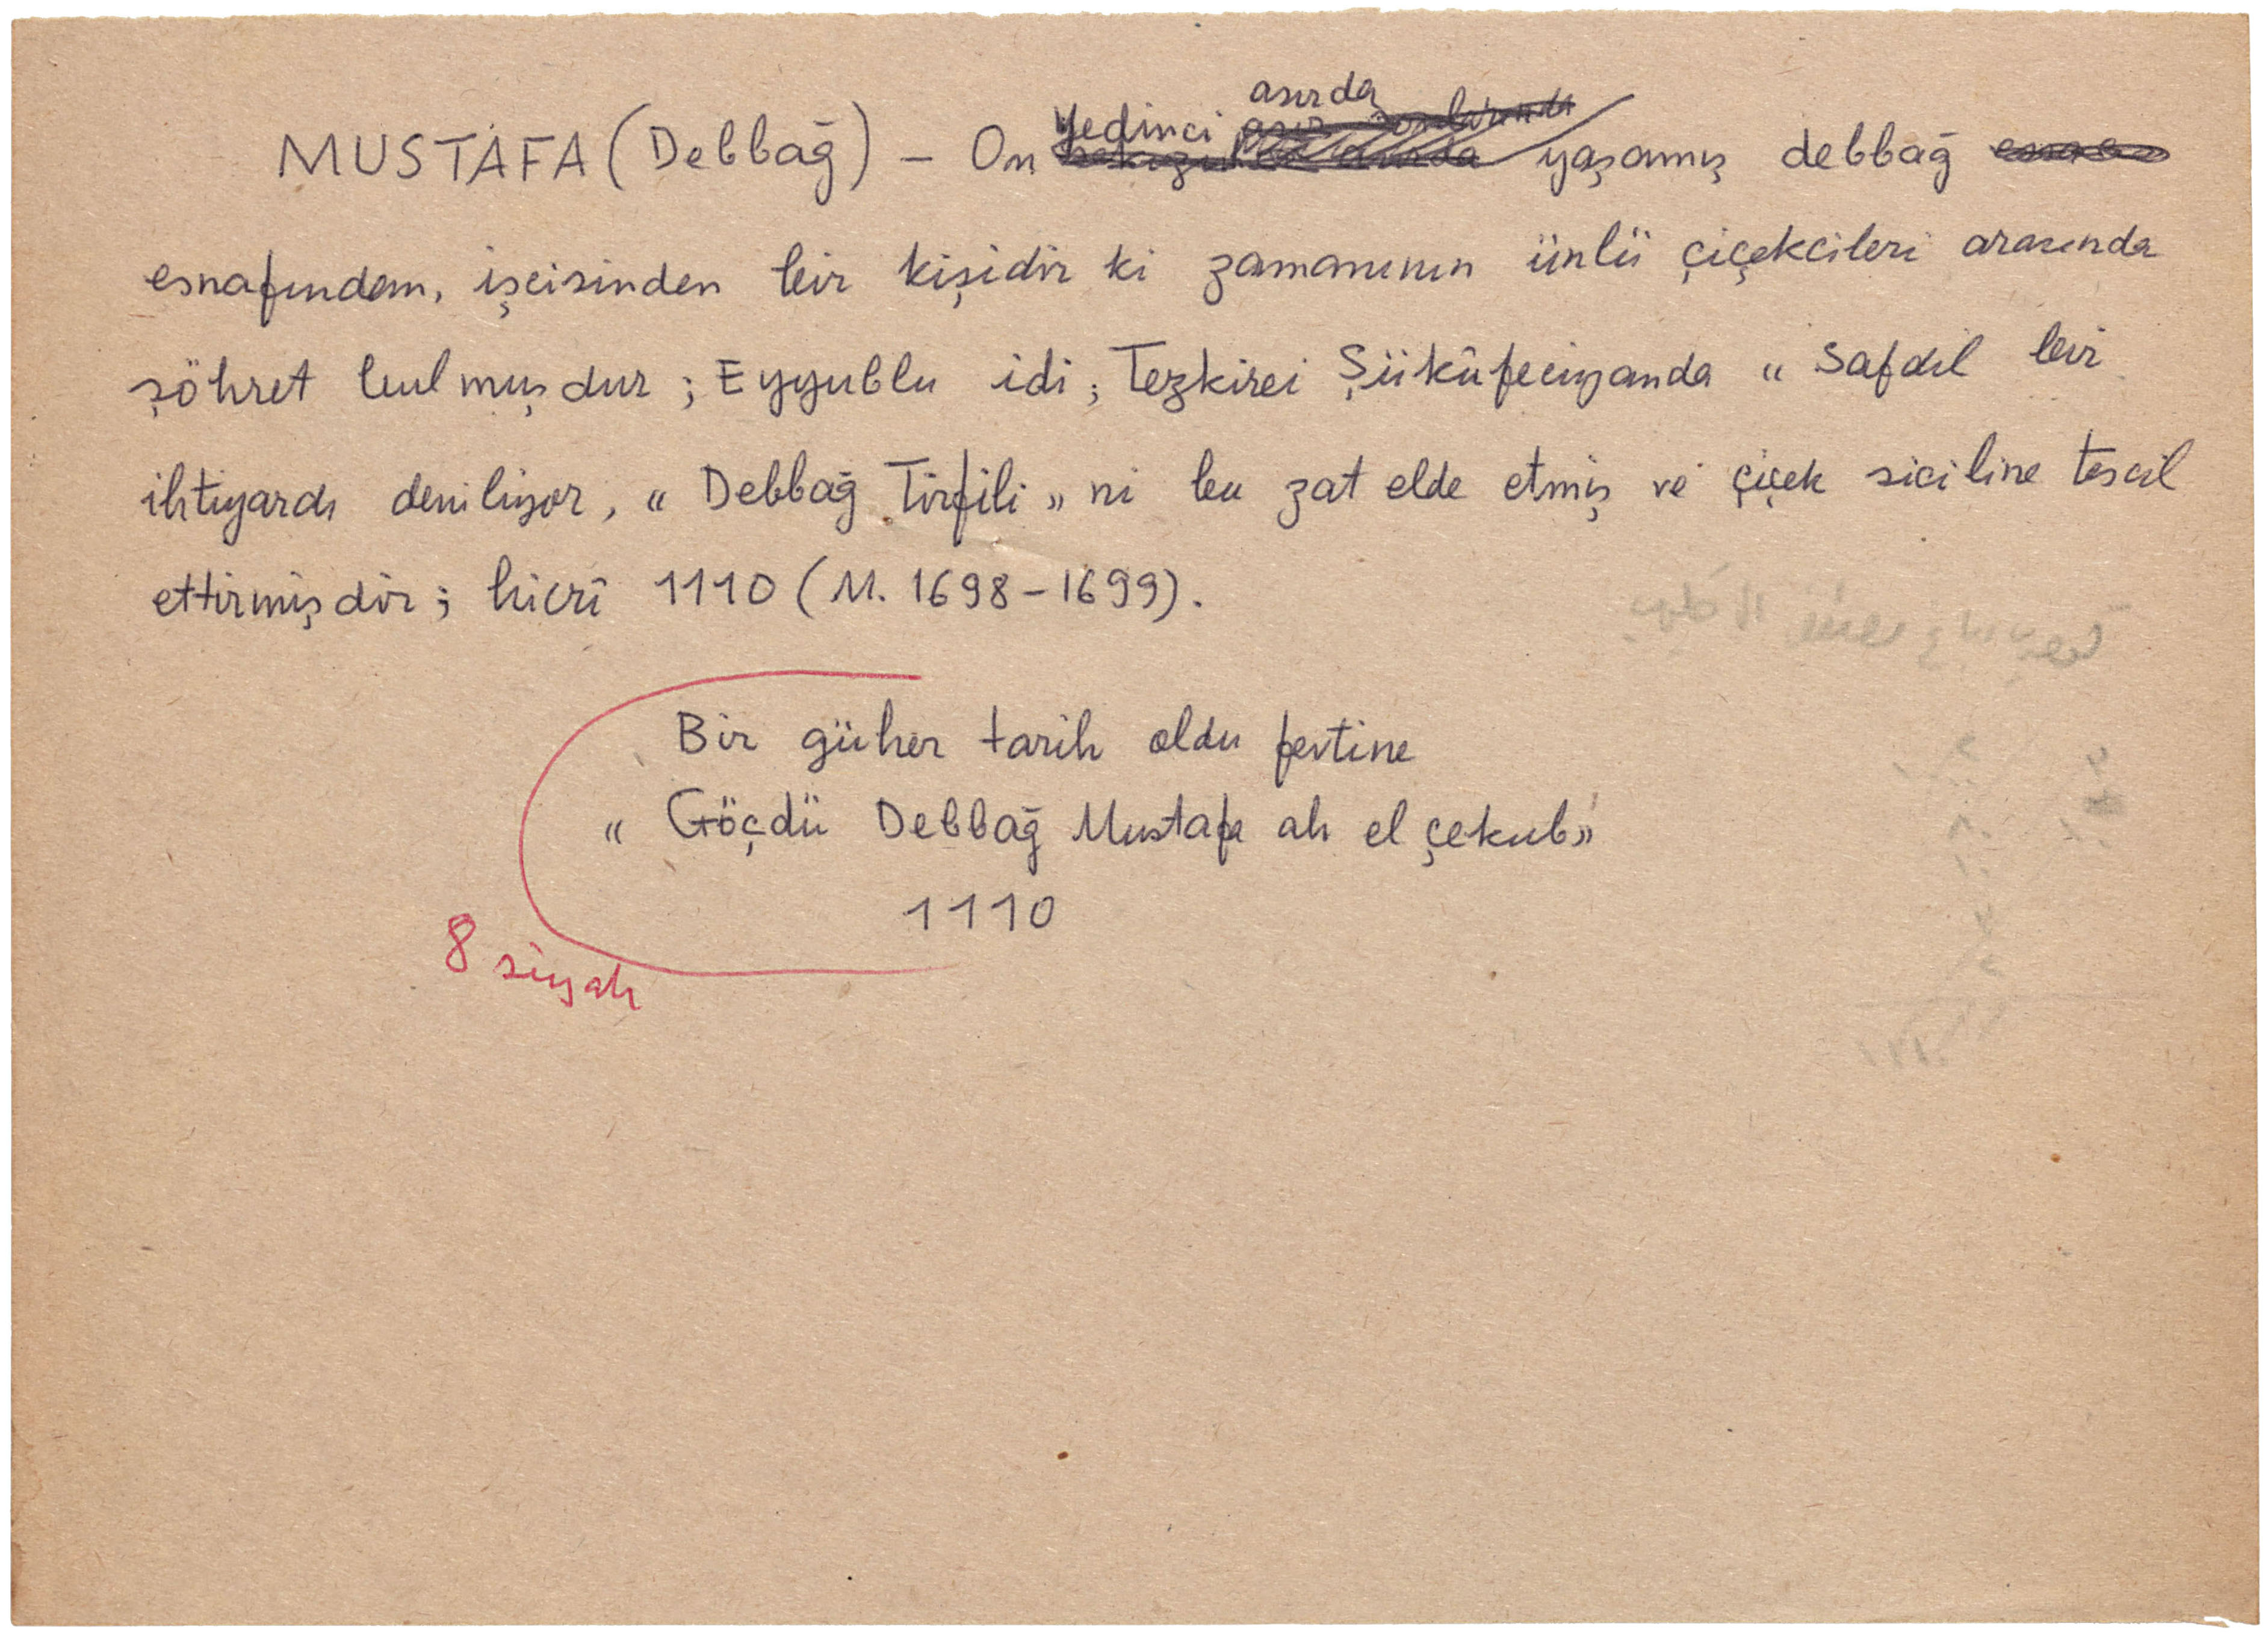 MUSTAFA (Debbağ) – On yedinci asırda yaşamış debbağ
esnafından, işcisinden bir kişidir ki zamanının ünlü çiçekcileri arasında
şöhret bulmuşdur; Eyyublu idi; Tezkirei Şükûfeciyanda « Safdil bir
ihtiyardı deniliyor, « Debbağ Tirfili » ni bu zat elde etmiş ve çiçek siciline tescil
ettirmişdir; hicrî 1110 (M. 1698–1699).
Bir güher tarih oldu fevtine
« Göçdü Debbağ Mustafa ah el çekub»
1110
8 siyah